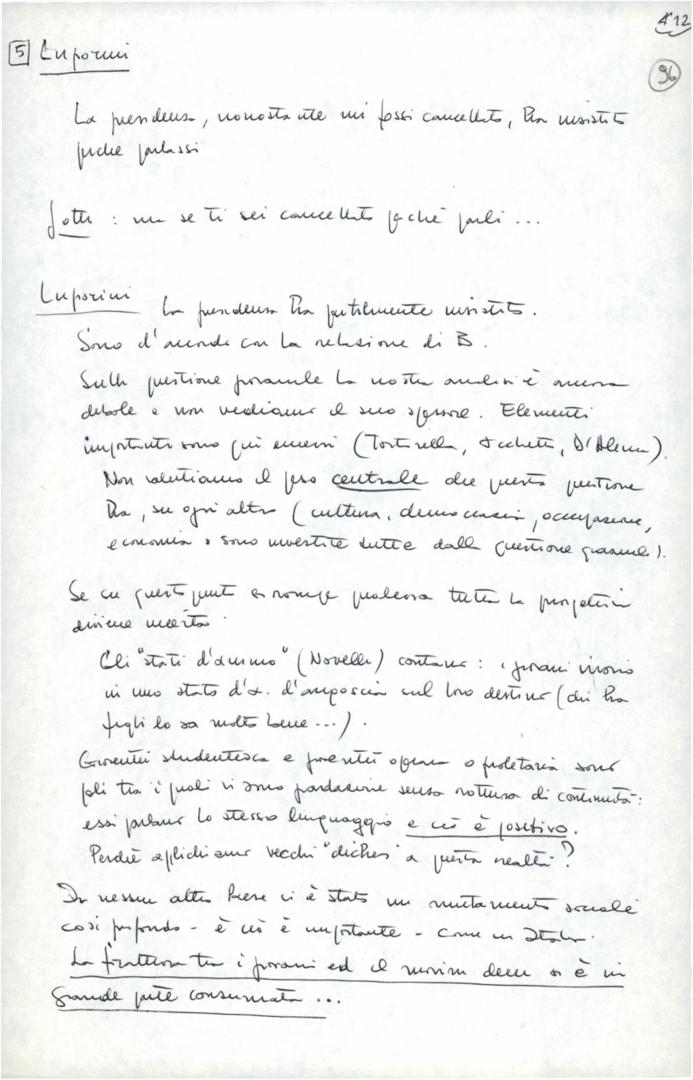 4'12
96
5 Luporini
La presidenza, nonostante mi fossi cancellato, ha insistito
perché parlassi
Jotti : ma se ti sei cancellato perché parli ...
Luporini La presidenza ha gentilmente insistito.
Sono d'accordo con la relazione di B.
Sulla questione giovanile la nostra analisi è ancora
debole e non vediamo il suo spessore. Elementi
importanti sono qui emersi (Tortorella, Occhetto, D'Alema).
Non valutiamo il peso centrale che questa questione
ha, su ogni altra (cultura, democrazia, occupazione,
economia sono investite tutte dalla questione giovanile).
Se su questo punto si rompe qualcosa tutta la prospettiva
diviene incerta.
Gli "stati d'animo" (Novelli) contano : i giovani vivono
in uno stato d'a. d'angoscia sul loro destino (chi ha
figli lo sa molto bene ...).
Gioventù studentesca e gioventù operaia o proletaria sono
poli tra i quali vi sono gradazioni senza rottura di continuità :
essi parlano lo stesso linguaggio e ciò è positivo.
Perché applichiamo vecchi "clichés" a questa realtà ?
In nessun altro Paese vi è stato un mutamento sociale
così profondo - e ciò è importante - come in Italia.
La frattura tra i giovani ed il movim. dem. si è in
grande parte consumata ...